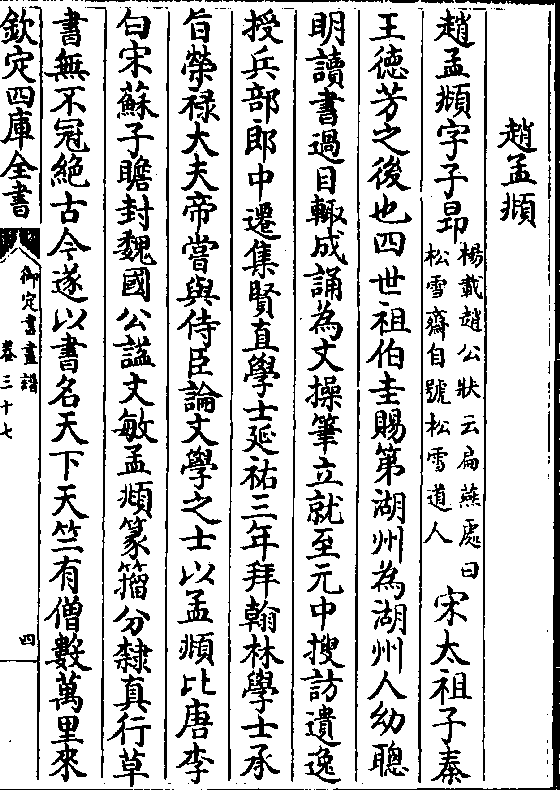 趙孟頫
趙孟頫字子昻楊載趙公狀云扁燕處曰
松雪齋自號松雪道人宋太祖子秦
王德芳之後也四世祖伯圭賜第湖州為湖州人幼聰
明讀書過目輙成誦為文操筆立就至元中搜訪遺逸
授兵部郎中遷集賢直學士延祐三年拜翰林學士承
旨榮禄大夫帝嘗與侍臣論文學之士以孟頫比唐李
白宋蘇子瞻封魏國公諡文敏孟頫篆籀分隸真行草
書無不冠絶古今遂以書名天下天竺有僧數萬里來
欽定四庫全書
御定書畫譜
卷三十七
四